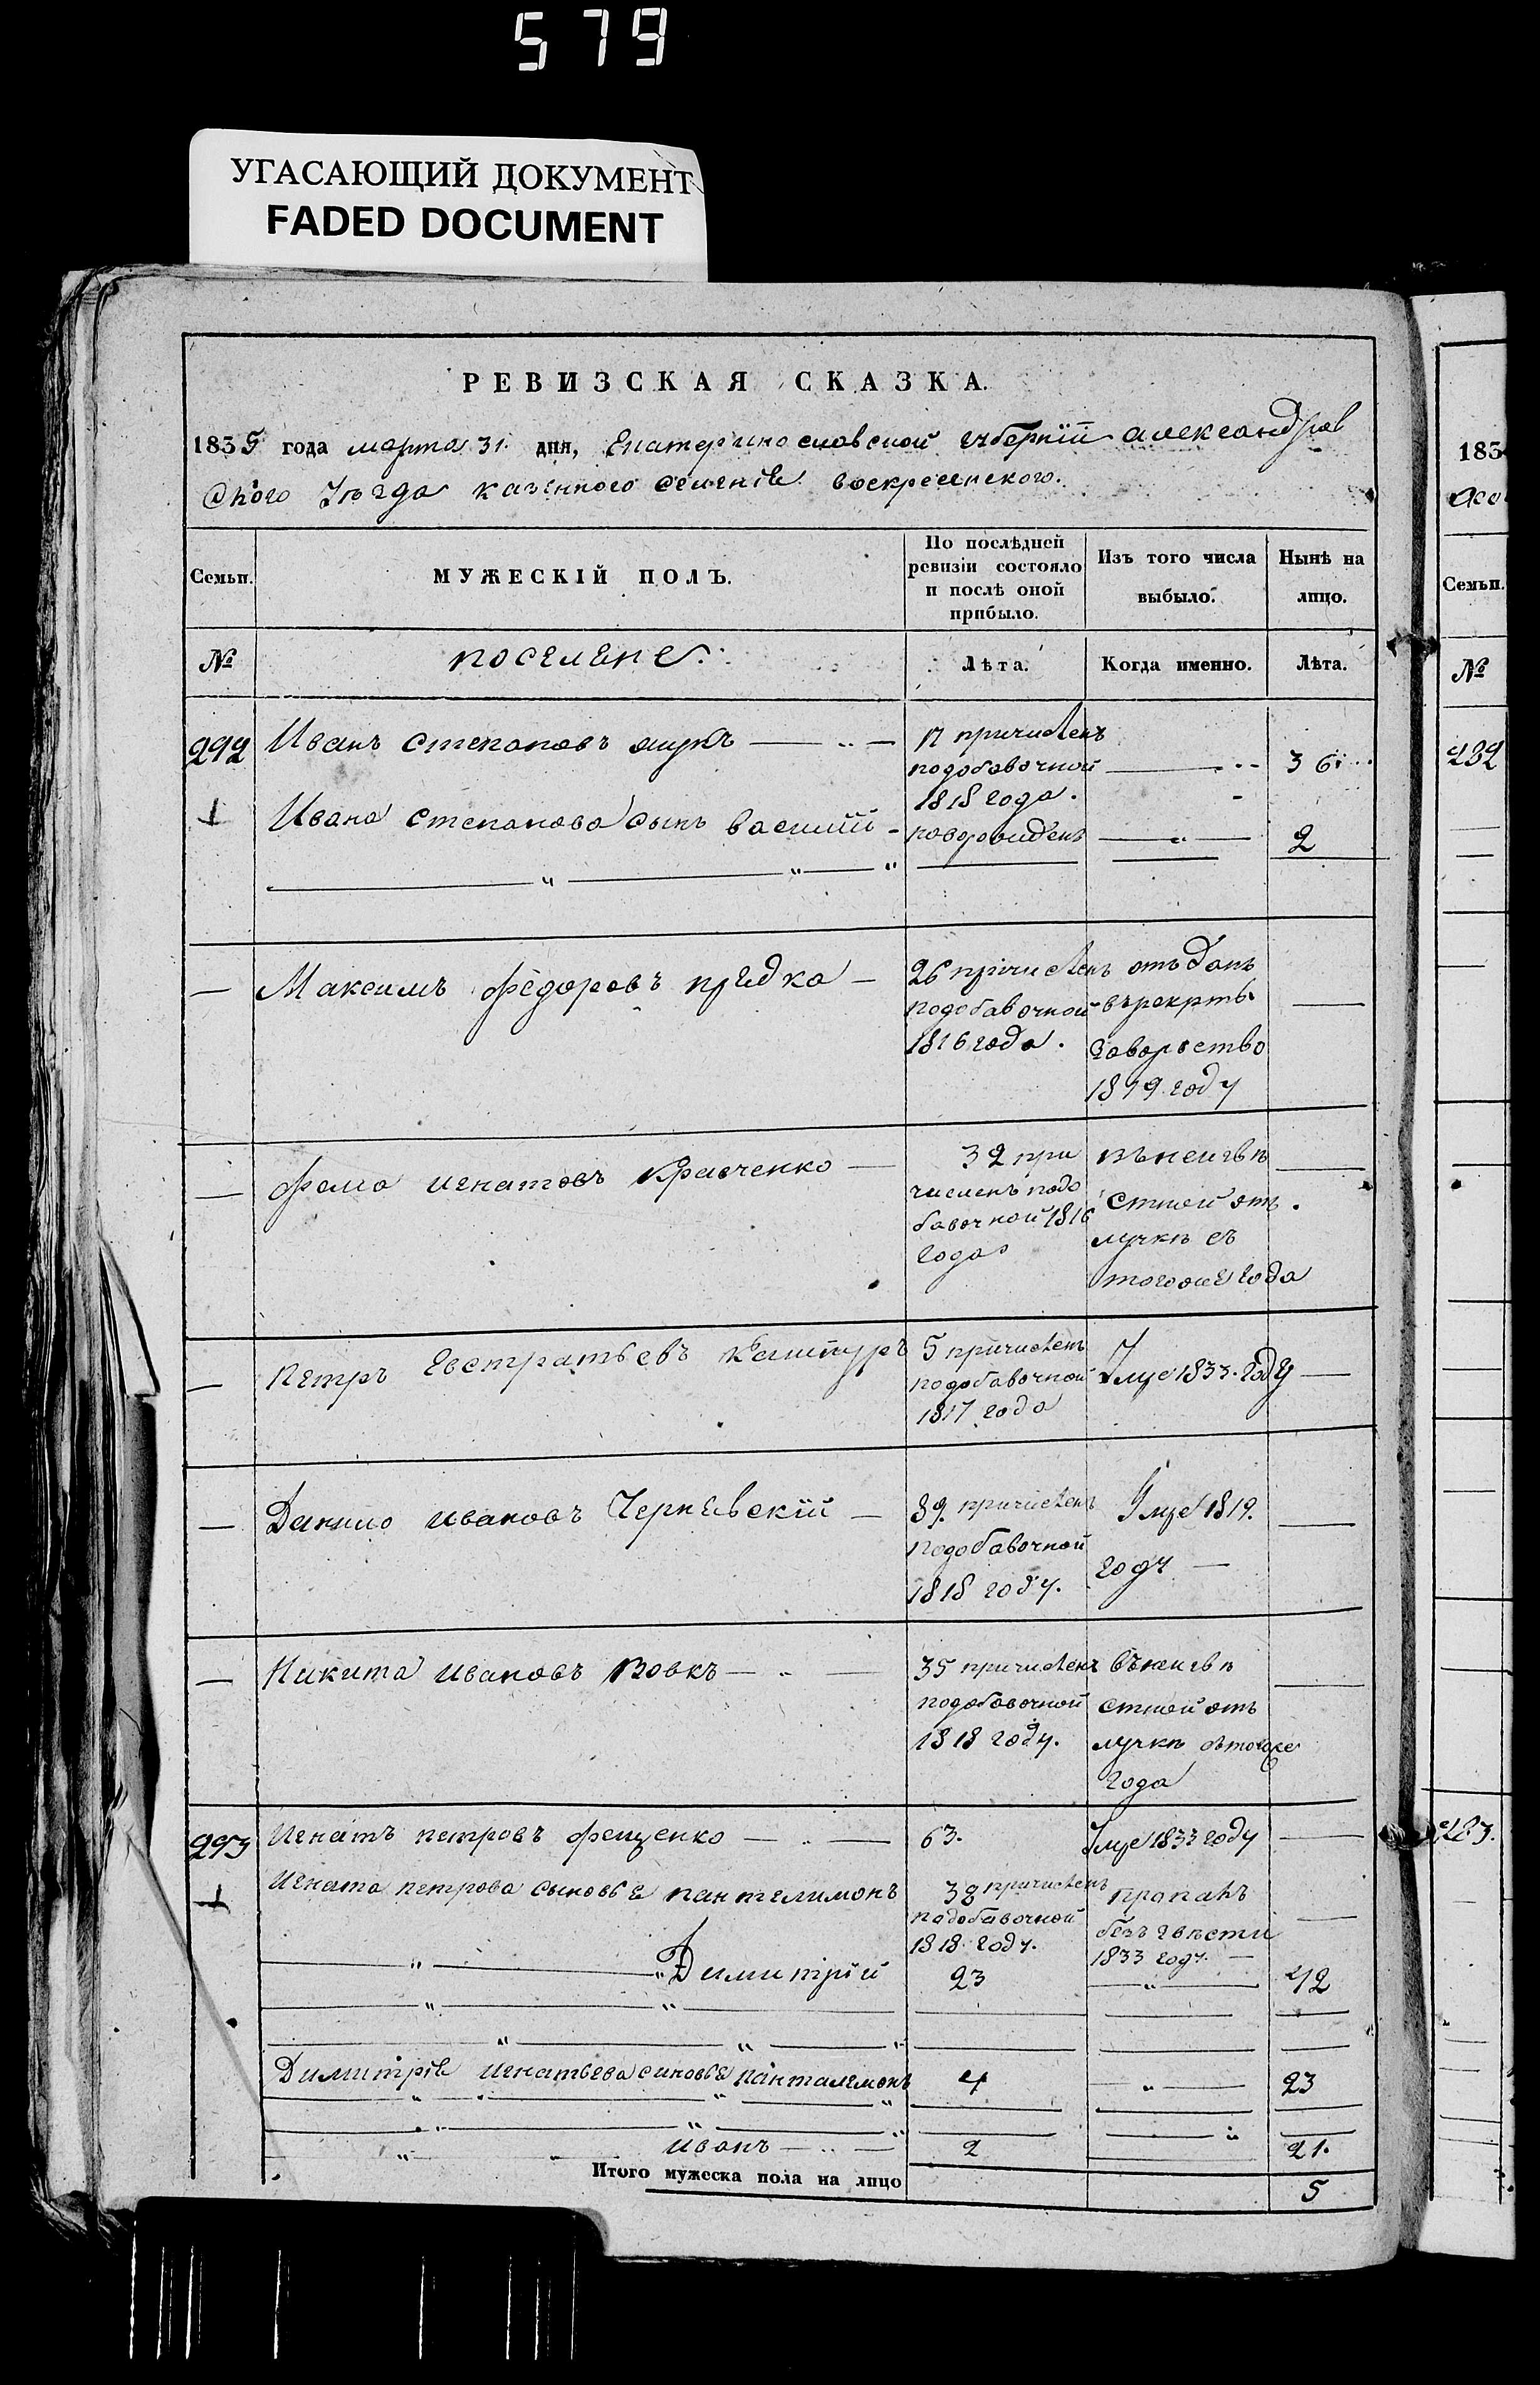 579
УГАСАЮЩИЙ ДОКУМЕНТ
FADED DOCUMENT
РЕВИЗСКАЯ СКАЗКА.
1835 года марта 31. дня, Екатеринославской губернїй александров
ского уѣзда казенного селенїя воскресенского.
Семьи.
МУЖЕСКІЙ ПОЛЪ.
По послѣдней ревизіи состояло и послѣ оной прибыло.
Изъ того числа выбыло.
Нынѣ на лицо.
№
поселяне.
Лѣта.
Когда именно.
Лѣта.
292 Иванъ степановъ 17 причисленъ
подобавочной 36
1818 года.
Ивана степанова сынъ василїй новорожденъ 2
Максимъ федоровъ 26 причисленъ отъданъ
подобавочной
1816 года.
1819 году
фома игнатовъ кравченко 32 при
численъ подо
бавочной 1816
года
въ неизвѣ
стной отъ
лучкѣ съ
тогоже года
Петръ Евстратьевъ 5 причисленъ
подобавочной умре 1833. году
1817 года
Данило ивановъ Чернявскїй 39. причисленъ умре 1819.
подобавочной году
1818 году.
Никита ивановъ вовкъ 35 причисленъ въ неизвѣ
подобавочной стной отъ
1818 году. лучкѣ стогоже
года
293 Игнатъ петровъ фещенко 63. умре 1833 году
Игната петрова сыновья пантелимонъ 38 причисленъ пропалъ
подобавочной безъ звѣсти
1818 году. 1833 году.
Димитрїй 23 42
Димитрїя игнатьева сыновья панталемонъ 4 23
иванъ 2 21.
Итого мужеска пола на лицо 5
183
Семьи.
№
232